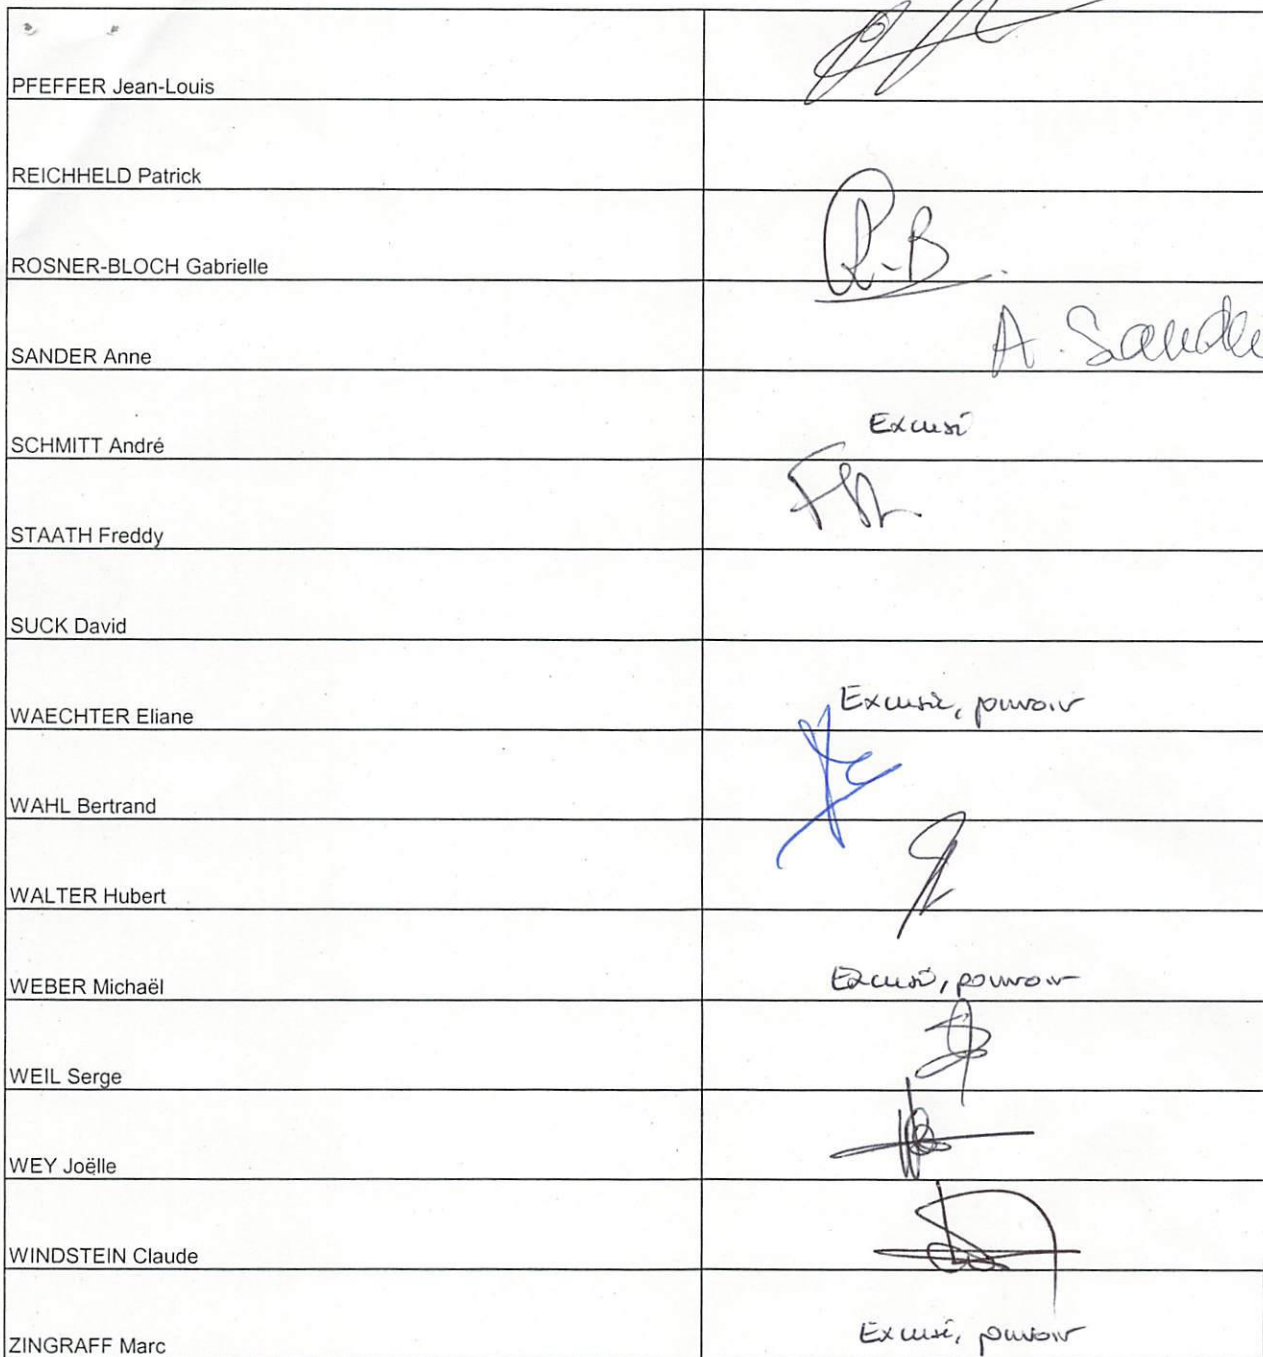 PFEFFER Jean-Louis
REICHHELD Patrick
ROSNER-BLOCH Gabrielle
R-B
SANDER Anne
A. Sander
SCHMITT André
Excusé
STAATH Freddy
SUCK David
WAECHTER Eliane
Excusée, pouvoir
WAHL Bertrand
WALTER Hubert
WEBER Michaël
Excusé, pouvoir
WEIL Serge
WEY Joëlle
WINDSTEIN Claude
ZINGRAFF Marc
Excusé, pouvoir